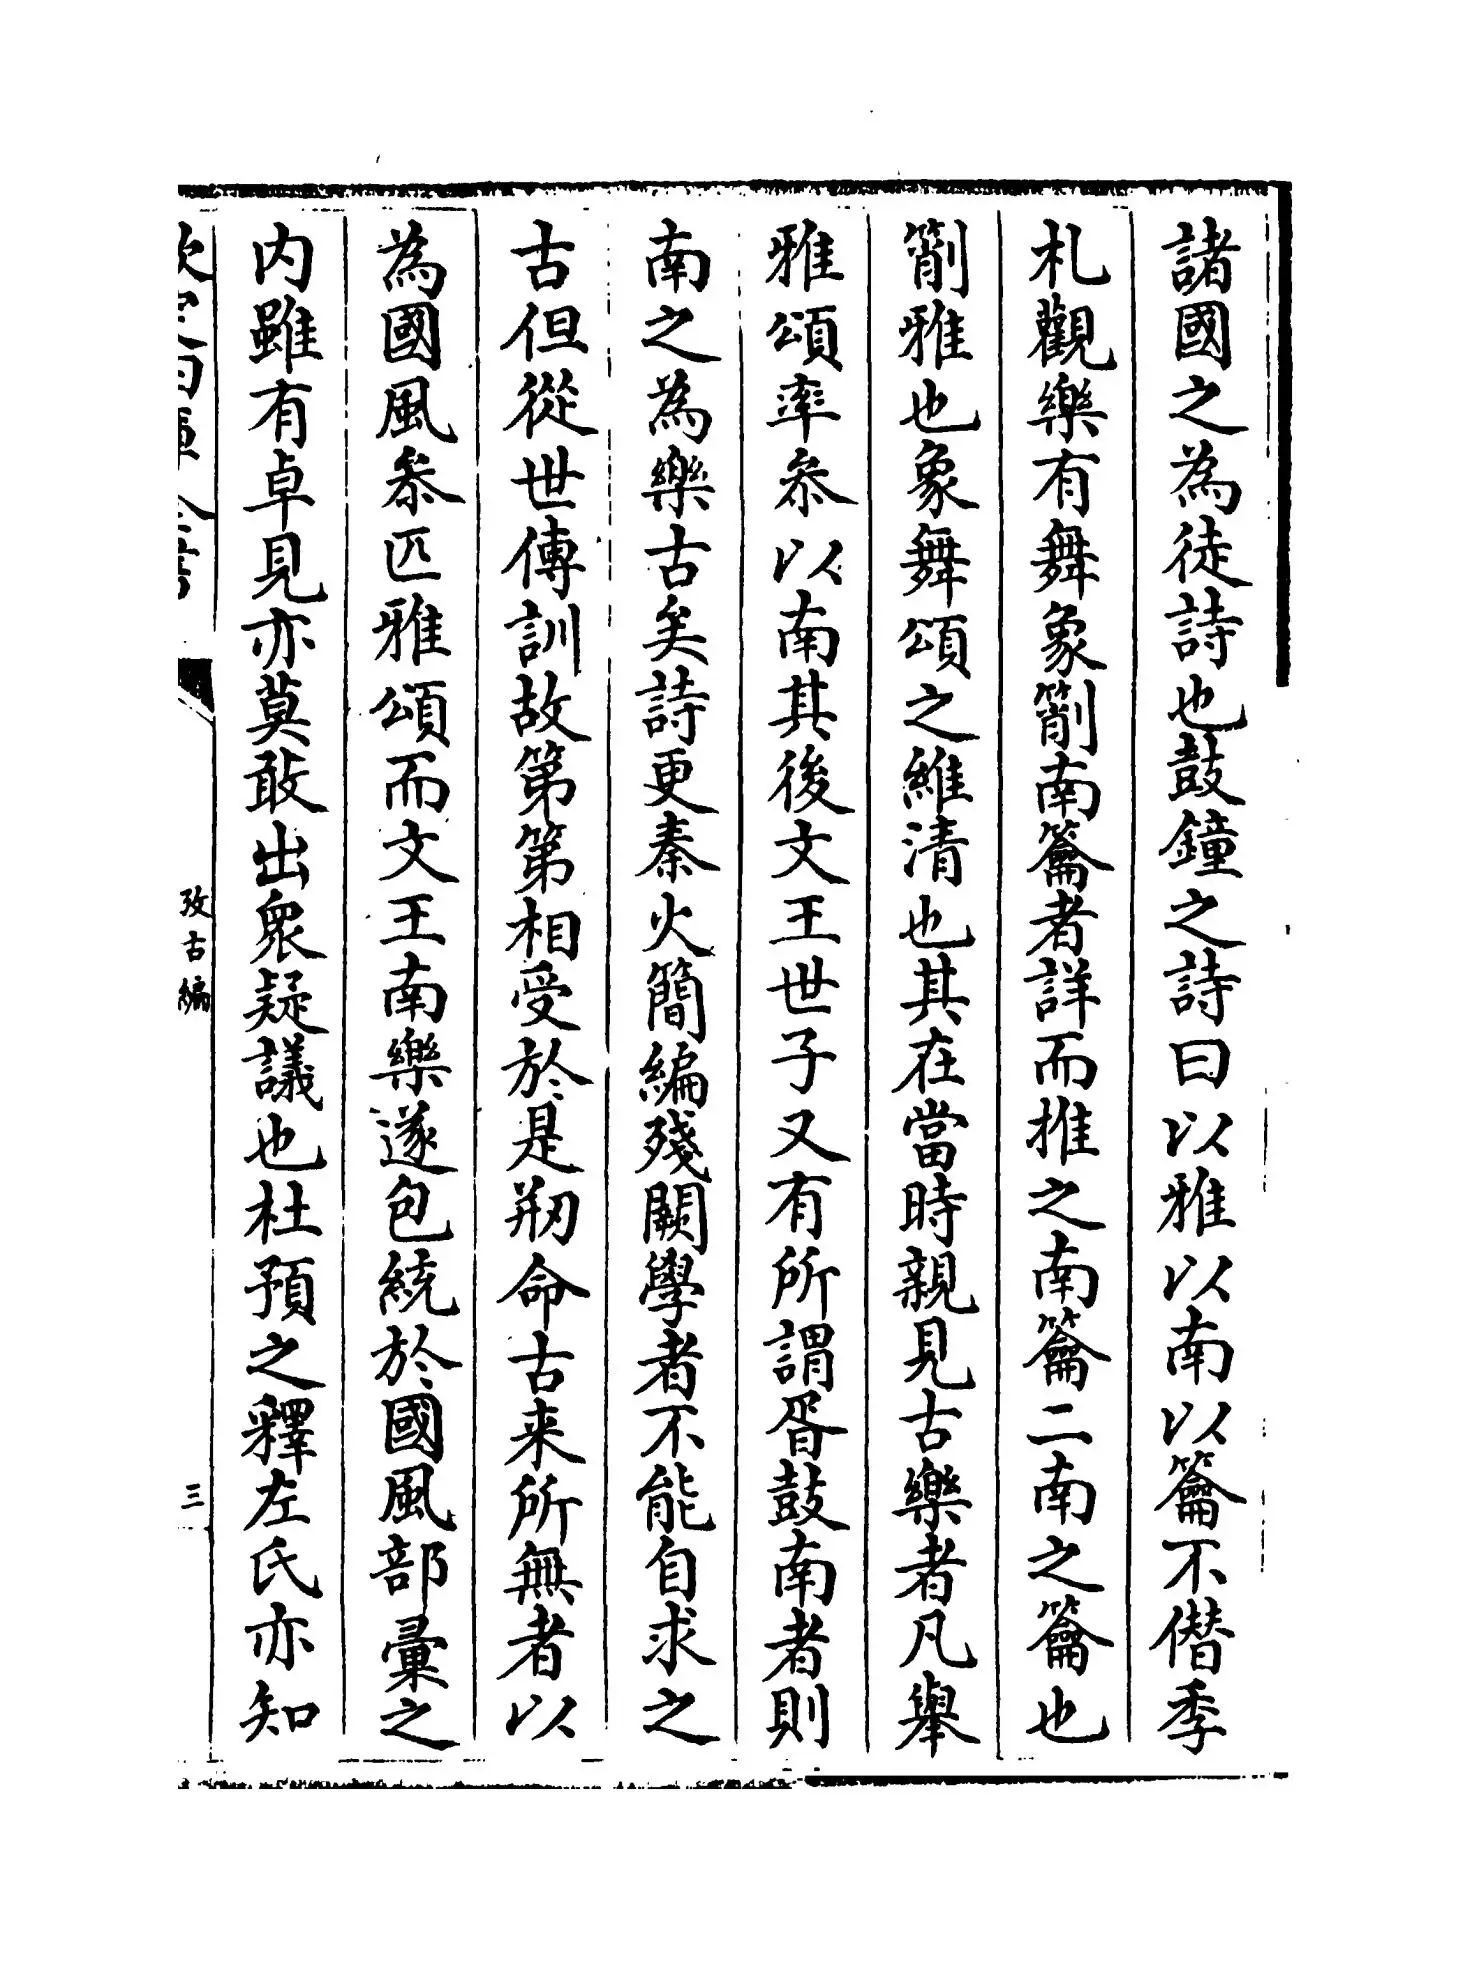 諸國之為徒詩也鼓鐘之詩曰以雅以南以籥不僭季
札觀樂有舞象箾南籥者詳而推之南籥二南之籥也
箾雅也象舞頌之維清也其在當時親見古樂者凡舉
雅頌率叅以南其後文王世子又有所謂胥鼓南者則
南之為樂古矣詩更秦火簡編殘闕學者不能自求之
古但從世傳訓故第第相受於是剏命古来所無者以
為國風叅匹雅頌而文王南樂遂包統於國風部彚之
内雖有卓見亦莫敢出衆疑議也杜預之釋左氏亦知
攷古編
三